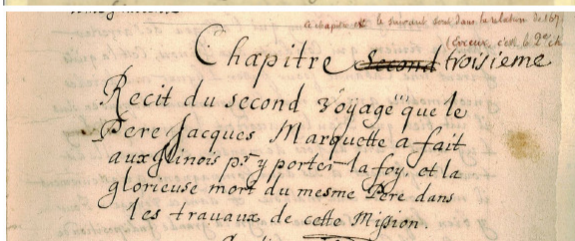 Ce chapitre et le suivant sont dans la relation de 167
(Erreur, c'est le 2e ch
Chapitre Second troisieme
Recit du second voyage que le
Pere Jacques Marquette a fait
aux Ilinois pr y porter la foy, et la
glorieuse mort du mesme Pere dans
les travaux de cette Mission.